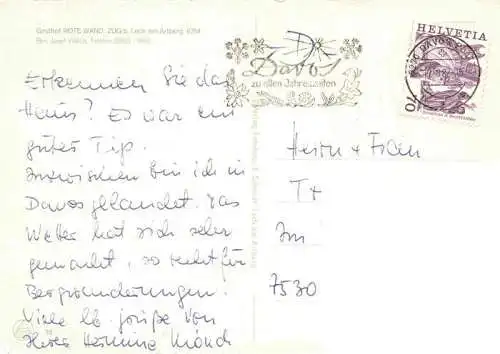 Gasthof ROTE WAND, ZUG b. Lech am Arlberg
Bes. Josef Walch, Telefon
Erkennen Sie das
Haus? Es war ein
guter Tip.
Inzwischen bin ich in
Davos gelandet. Das
Wetter hat sich sehr
gemacht, so recht für
Bergwanderungen.
Viele lb. Grüße von
Ihrer
Davos
zu allen Jahreszeiten
HELVETIA
DAVOS
Herrn + Frau
Tx
Im
7530